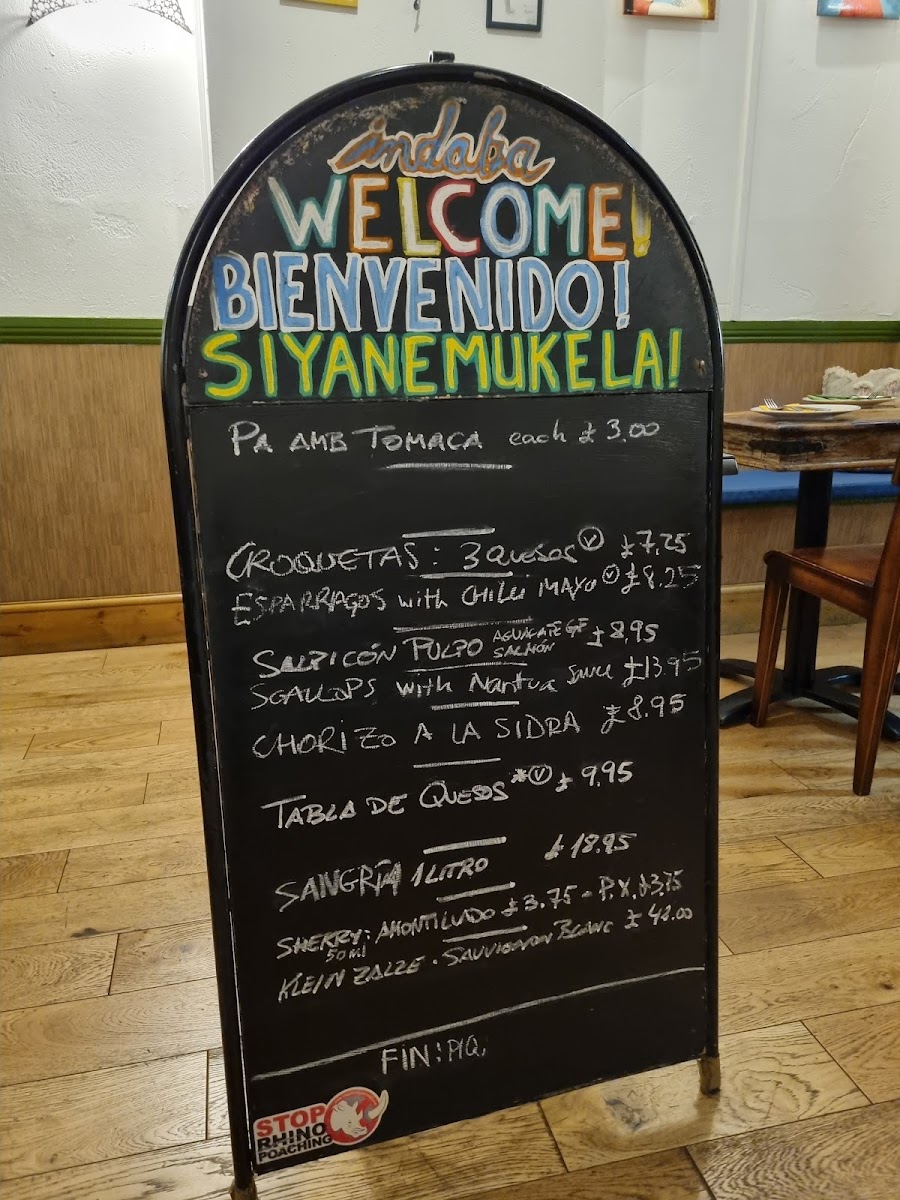 indaba
WELCOME!
BIENVENIDO!
SIYANEMUKELA!
PA AMB TOMACA each £3.00
CROQUETAS: 3 QUESOS Ⓥ £7.25
ESPARRAGOS with CHILLI MAYO Ⓥ £8.25
SALPICÓN PULPO AGUACATE GF £8.95
SALMÓN
SCALLOPS with Nantua sauce £13.95
CHORIZO A LA SIDRA £8.95
TABLA DE QUESOS *Ⓥ £9.95
SANGRÍA 1 LITRO £18.95
SHERRY: AMONTILLADO £3.75 - P.X. £3.75
50ml
KLEIN ZALZE . SAUVIGNON BLANC £42.00
FIN:
STOP
RHINO
POACHING